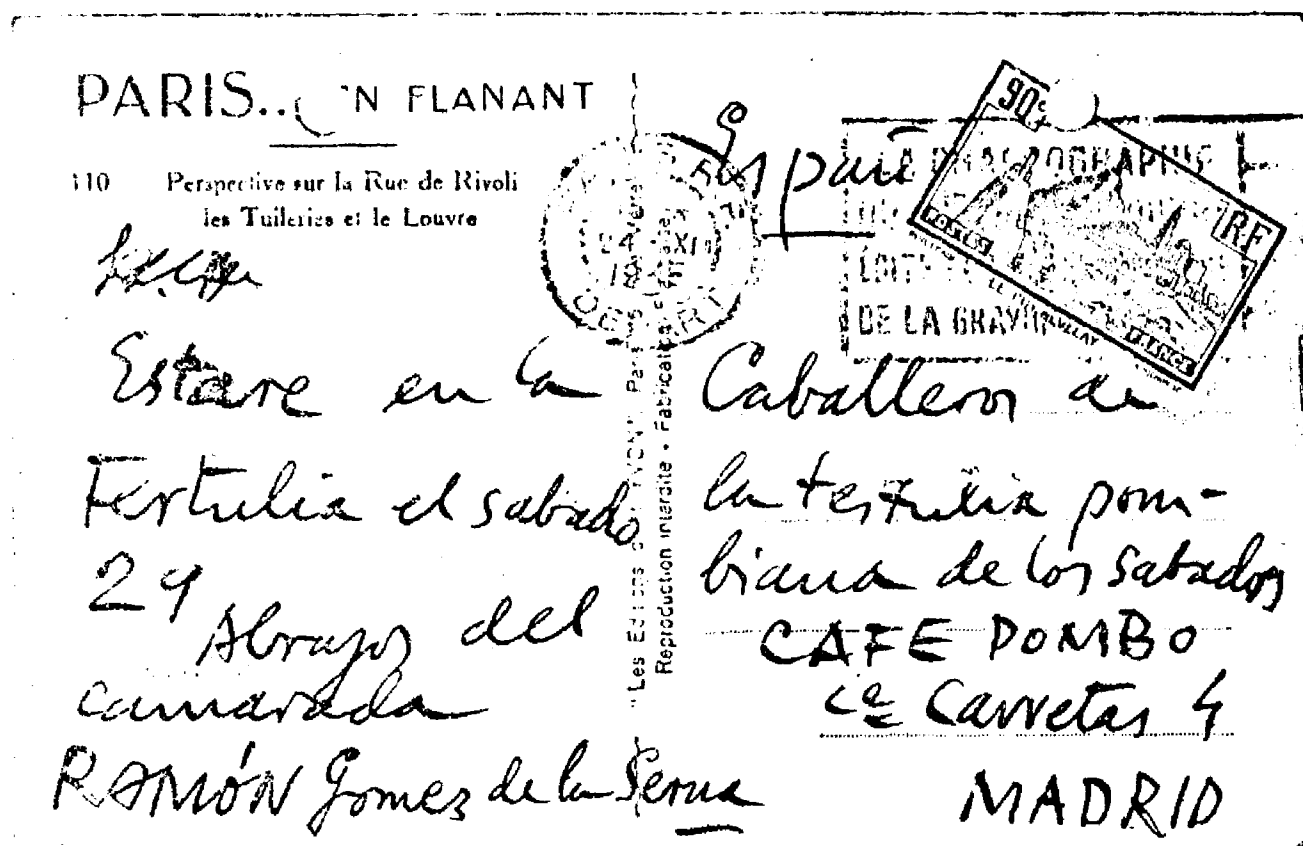 PARIS... 'N FLANANT
110 Perspective sur la Rue de Rivoli
les Tuileries et le Louvre
Estare en la
Tertulia el sabado
29
Abrazos del
camarada
RAMÓN Gomez de la Serna
"Les Editions d'Art YVON" Paris
Reproduction interdite - Fabrication
90c
RF
POSTES
VEZELAY
FRANCE
DE LA GRAVURE
24 XII
DEPART
España
Caballeros de
la tertulia pom-
biana de los sabados
CAFE POMBO
ce Carretas 4
MADRID